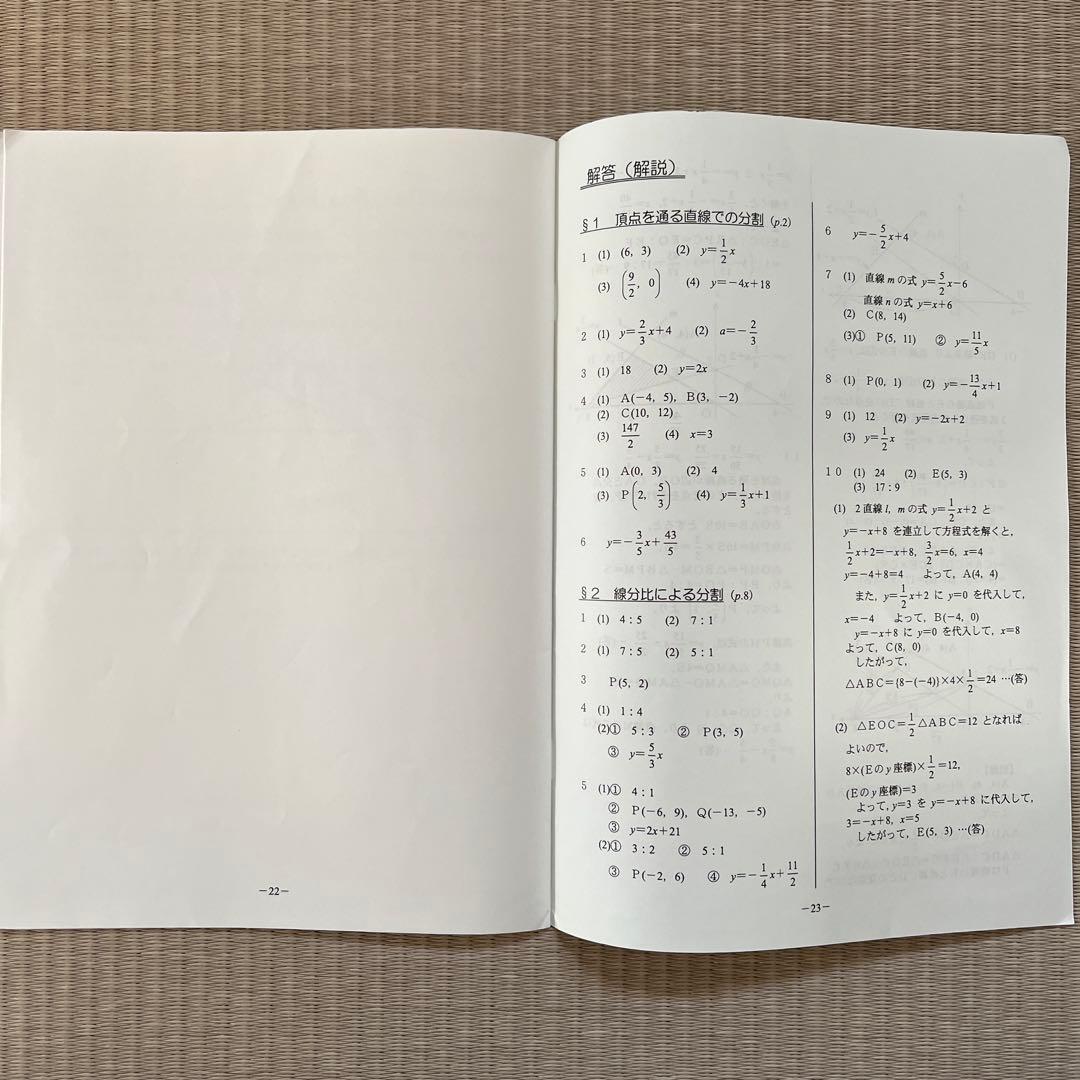 －22－
解答（解説）
§1　頂点を通る直線での分割 (p.2)
1 (1) (6, 3) (2) y=1/2x
(3) (9/2, 0) (4) y=−4x+18
2 (1) y=2/3x+4 (2) a=−2/3
3 (1) 18 (2) y=2x
4 (1) A(−4, 5), B(3, −2)
(2) C(10, 12)
(3) 147/2 (4) x=3
5 (1) A(0, 3) (2) 4
(3) P(2, 5/3) (4) y=1/3x+1
6 y=−3/5x+43/5
§2　線分比による分割 (p.8)
1 (1) 4：5 (2) 7：1
2 (1) 7：5 (2) 5：1
3 P(5, 2)
4 (1) 1：4
(2)① 5：3 ② P(3, 5)
③ y=5/3x
5 (1)① 4：1
② P(−6, 9), Q(−13, −5)
③ y=2x+21
(2)① 3：2 ② 5：1
③ P(−2, 6) ④ y=−1/4x+11/2
6 y=−5/2x+4
7 (1) 直線mの式 y=5/2x−6
直線nの式 y=x+6
(2) C(8, 14)
(3)① P(5, 11) ② y=11/5x
8 (1) P(0, 1) (2) y=−13/4x+1
9 (1) 12 (2) y=−2x+2
(3) y=1/2x
10 (1) 24 (2) E(5, 3)
(3) 17：9
(1) 2直線l, mの式 y=1/2x+2 と
y=−x+8 を連立して方程式を解くと，
1/2x+2=−x+8, 3/2x=6, x=4
y=−4+8=4 よって，A(4, 4)
また，y=1/2x+2 に y=0 を代入して，
x=−4 よって，B(−4, 0)
y=−x+8 に y=0 を代入して，x=8
よって，C(8, 0)
したがって，
△ABC={8−(−4)}×4×1/2=24 …(答)
(2) △EOC=1/2△ABC=12 となれば
よいので，
8×(Eのy座標)×1/2=12,
(Eのy座標)=3
よって，y=3 を y=−x+8 に代入して，
3=−x+8, x=5
したがって，E(5, 3) …(答)
－23－